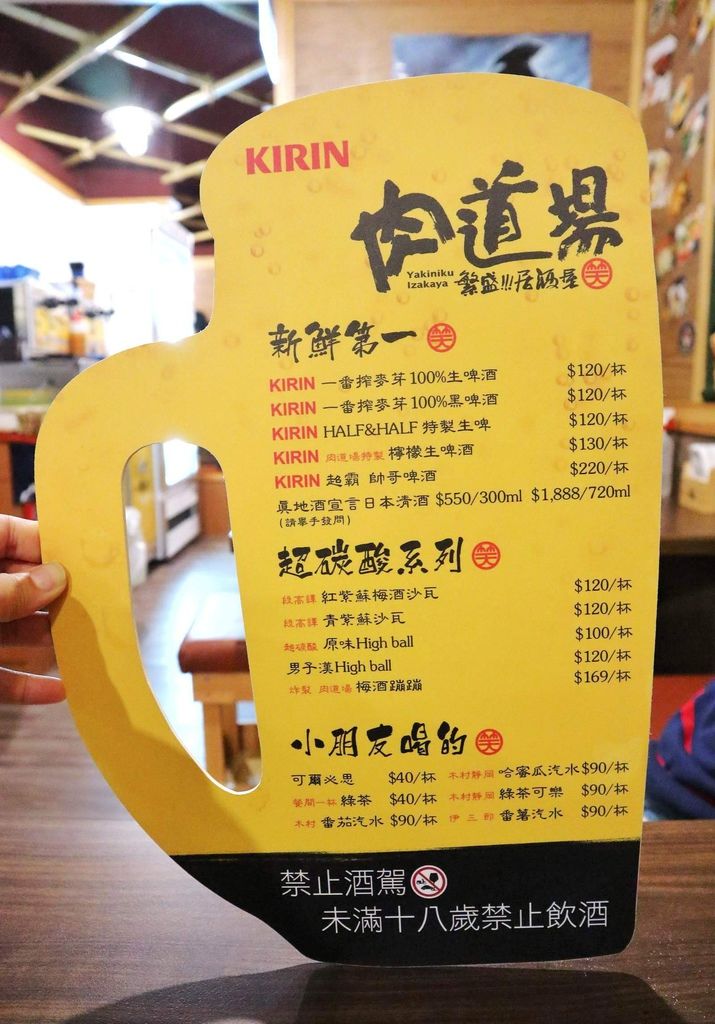 KIRIN
肉道場
Yakiniku
Izakaya 繁盛!!!居酒屋 笑
新鮮第一 笑
KIRIN 一番搾麥芽100%生啤酒 $120/杯
KIRIN 一番搾麥芽100%黑啤酒 $120/杯
KIRIN HALF&HALF 特製生啤 $120/杯
KIRIN 肉道場特製 檸檬生啤酒 $130/杯
KIRIN 超霸 帥哥啤酒 $220/杯
真地酒宣言日本清酒 $550/300ml $1,888/720ml
(請舉手發問)
超碳酸系列 笑
段高譚 紅紫蘇梅酒沙瓦 $120/杯
段高譚 青紫蘇沙瓦 $120/杯
超碳酸 原味High ball $100/杯
男子漢High ball $120/杯
炸裂 肉道場 梅酒蹦蹦 $169/杯
小朋友喝的 笑
可爾必思 $40/杯 木村靜岡 哈蜜瓜汽水 $90/杯
餐間一杯 綠茶 $40/杯 木村靜岡 綠茶可樂 $90/杯
木村 番茄汽水 $90/杯 伊三郎 番薯汽水 $90/杯
禁止酒駕
未滿十八歲禁止飲酒